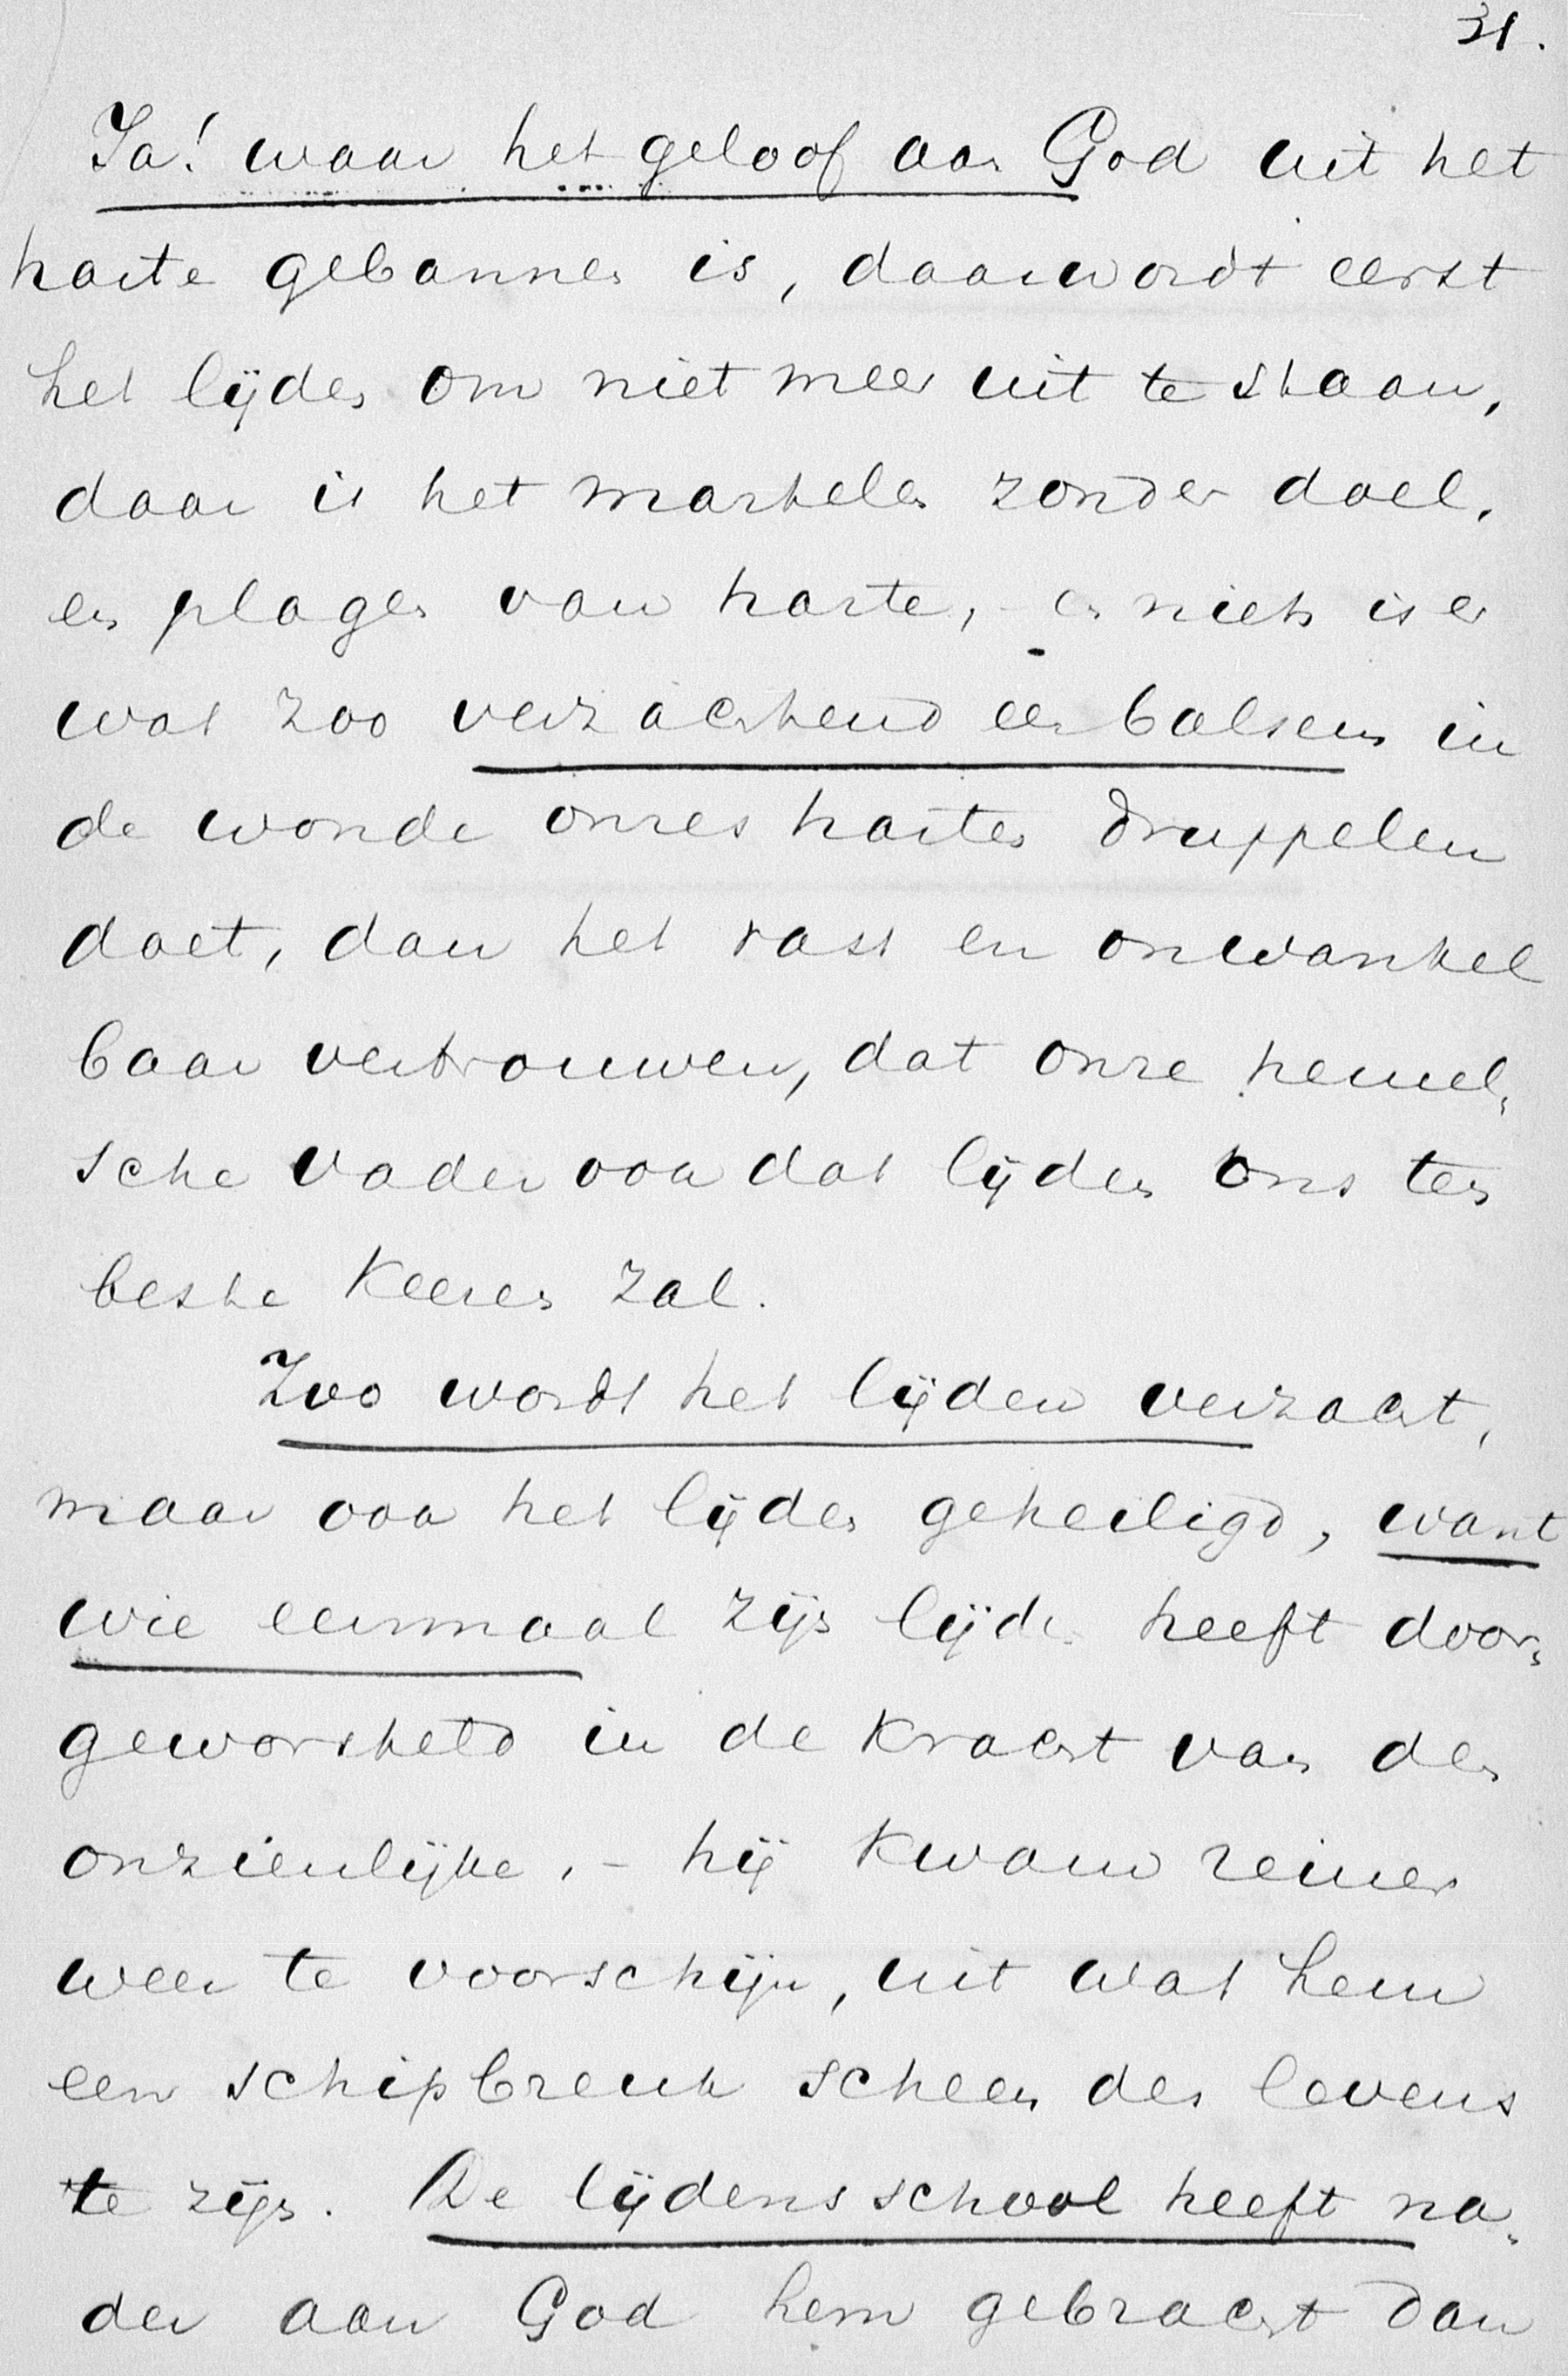 31.
Ja! waar het geloof aan God uit het
harte gebannen is, daar wordt eerst
het lijden om niet meer uit te staan,
daar is het martelen zonder doel,
en plagen van harte, - en niets is er
wat zoo verzachtend een balsem in
de wonde onzes harten druppelen
doet, dan het vast en onwankel
baar vertrouwen, dat onze hemel„
sche Vader ook dat lijden ons ten
beste keeren zal.
Zoo wordt het lijden verzacht,
maar ook het lijden geheiligd, want
wie eenmaal zijn lijden heeft door„
geworsteld in de kracht van den
onzienlijke, - hij kwam reiner
weer te voorschijn, uit wat hem
een schipbreuk scheen des levens
te zijn. De lijdensschool heeft na„
der aan God hem gebracht dan